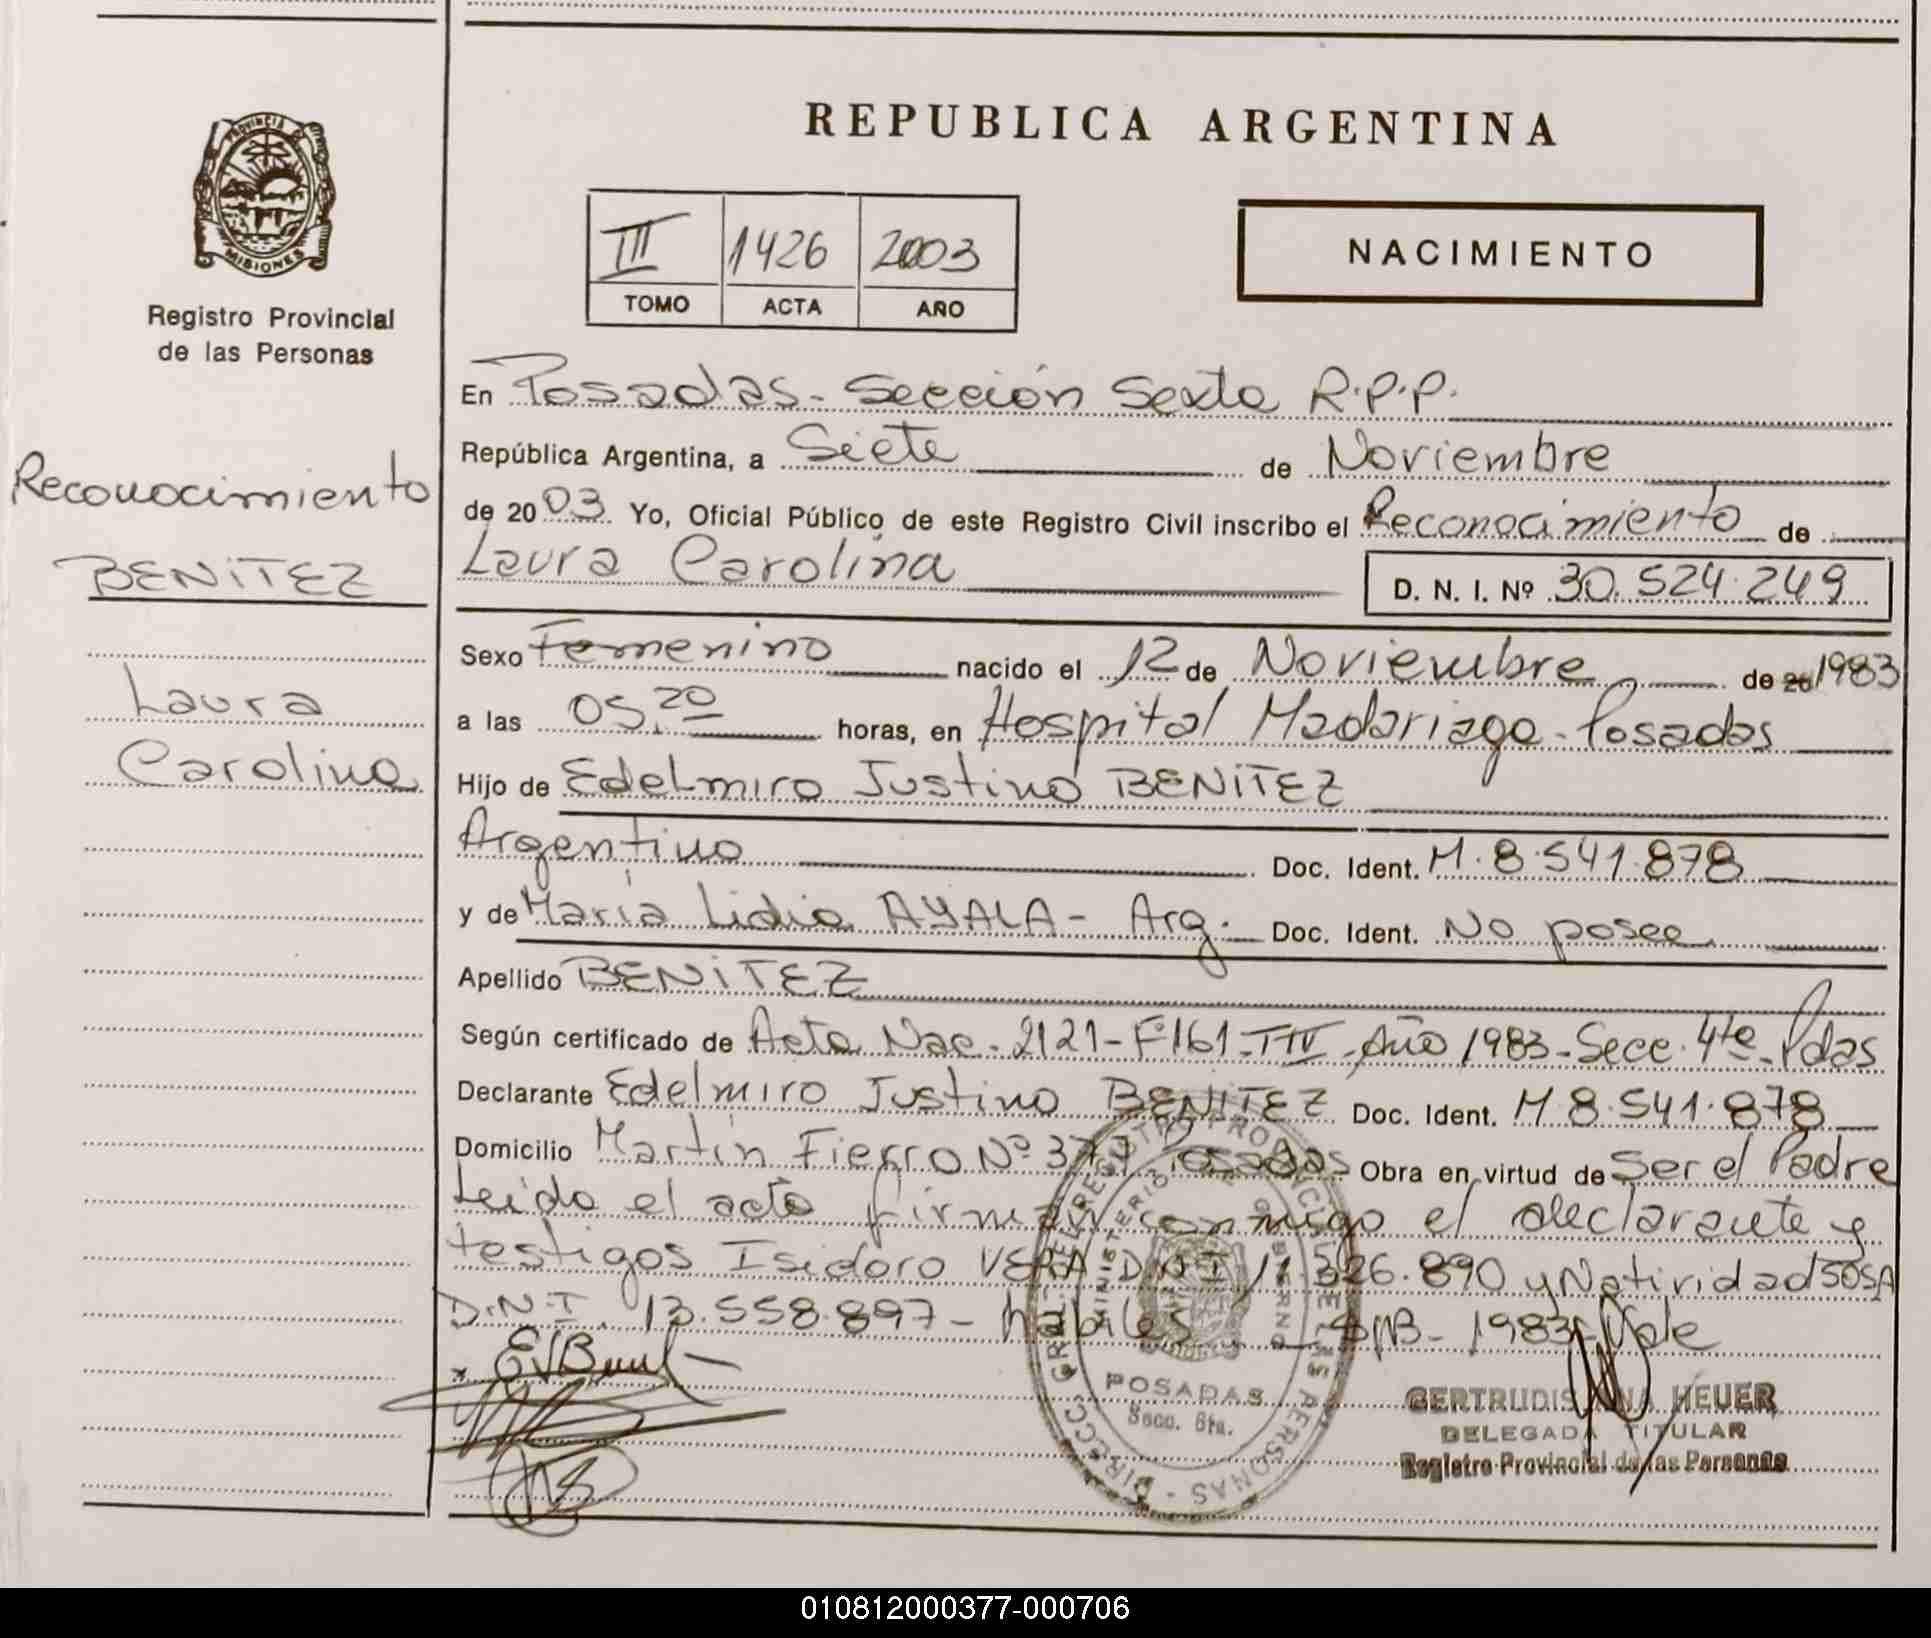 REPUBLICA ARGENTINA
PROVINCIA DE
MISIONES
Registro Provincial
de las Personas
III 1426 2003
TOMO ACTA AÑO
NACIMIENTO
Reconocimiento
BENITEZ
Laura
Carolina
En Posadas - Sección Sexta R.P.P.
República Argentina, a Siete de Noviembre
de 2003 Yo, Oficial Público de este Registro Civil inscribo el Reconocimiento de
Laura Carolina D. N. I. Nº 30.524.249
Sexo Femenino nacido el 12 de Noviembre de 20 1983
a las 05,20 horas, en Hospital Madariaga - Posadas
Hijo de Edelmiro Justino BENITEZ
Argentino Doc. Ident. M. 8.541.878
y de María Lidia AYALA - Arg. Doc. Ident. No posee
Apellido BENITEZ
Según certificado de Acta Nac. 2121 - Fº 161 - Año 1983 - Secc. 4ta - Pdas
Declarante Edelmiro Justino BENITEZ Doc. Ident. M. 8.541.878
Domicilio Martín Fierro Nº 377 Posadas Obra en virtud de Ser el Padre
Leído el acta firman conmigo el declarante y
testigos Isidoro VERA D.N.I. 11.326.890 y Natividad SOSA
D.N.I. 13.558.897 - hábiles - 1983 - Vale
DIRECC. GRAL. DEL REGISTRO PROVINCIAL DE LAS PERSONAS
MINISTERIO DE GOBIERNO
POSADAS
Secc. 6ta.
GERTRUDIS ANA HEUER
DELEGADA TITULAR
Registro Provincial de las Personas
010812000377-000706